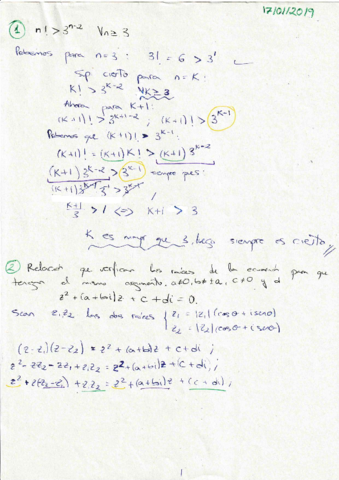 17/01/2019
① n! > 3^{n-2} ∀n ≥ 3
Probamos para n=3: 3! = 6 > 3^1
Sup. cierto para n=K:
K! > 3^{K-2} ∀K ≥ 3
Ahora para K+1:
(K+1)! > 3^{K+1-2}; (K+1)! > 3^{K-1}
Probamos que (K+1)! > 3^{K-1}:
(K+1)! = (K+1) K! > (K+1) 3^{K-2}
(K+1) 3^{K-2} > 3^{K-1} siempre que:
(K+1) 3^{K-1} 3^{-1} > 3^{K-1} /
\frac{K+1}{3} > 1 <=> K+1 > 3
K es mayor que 3, luego siempre es cierto
② Relación que verifican las raíces de la ecuación para que
tengan el mismo argumento, a≠0, b≠ a, c≠0 y d
z² + (a+bi)z + c + di = 0.
Sean z₁ z₂ las dos raíces { z₁ = |z₁| (cos θ + i sen θ)
z₂ = |z₂| (cos θ + i sen θ)
(z-z₁)(z-z₂) = z² + (a+bi)z + c + di ;
z² - zz₂ - zz₁ + z₁z₂ = z² + (a+bi)z + (c+di) ;
z² + z(-z₂-z₁) + z₁z₂ = z² + (a+bi)z + (c+di) ;
1